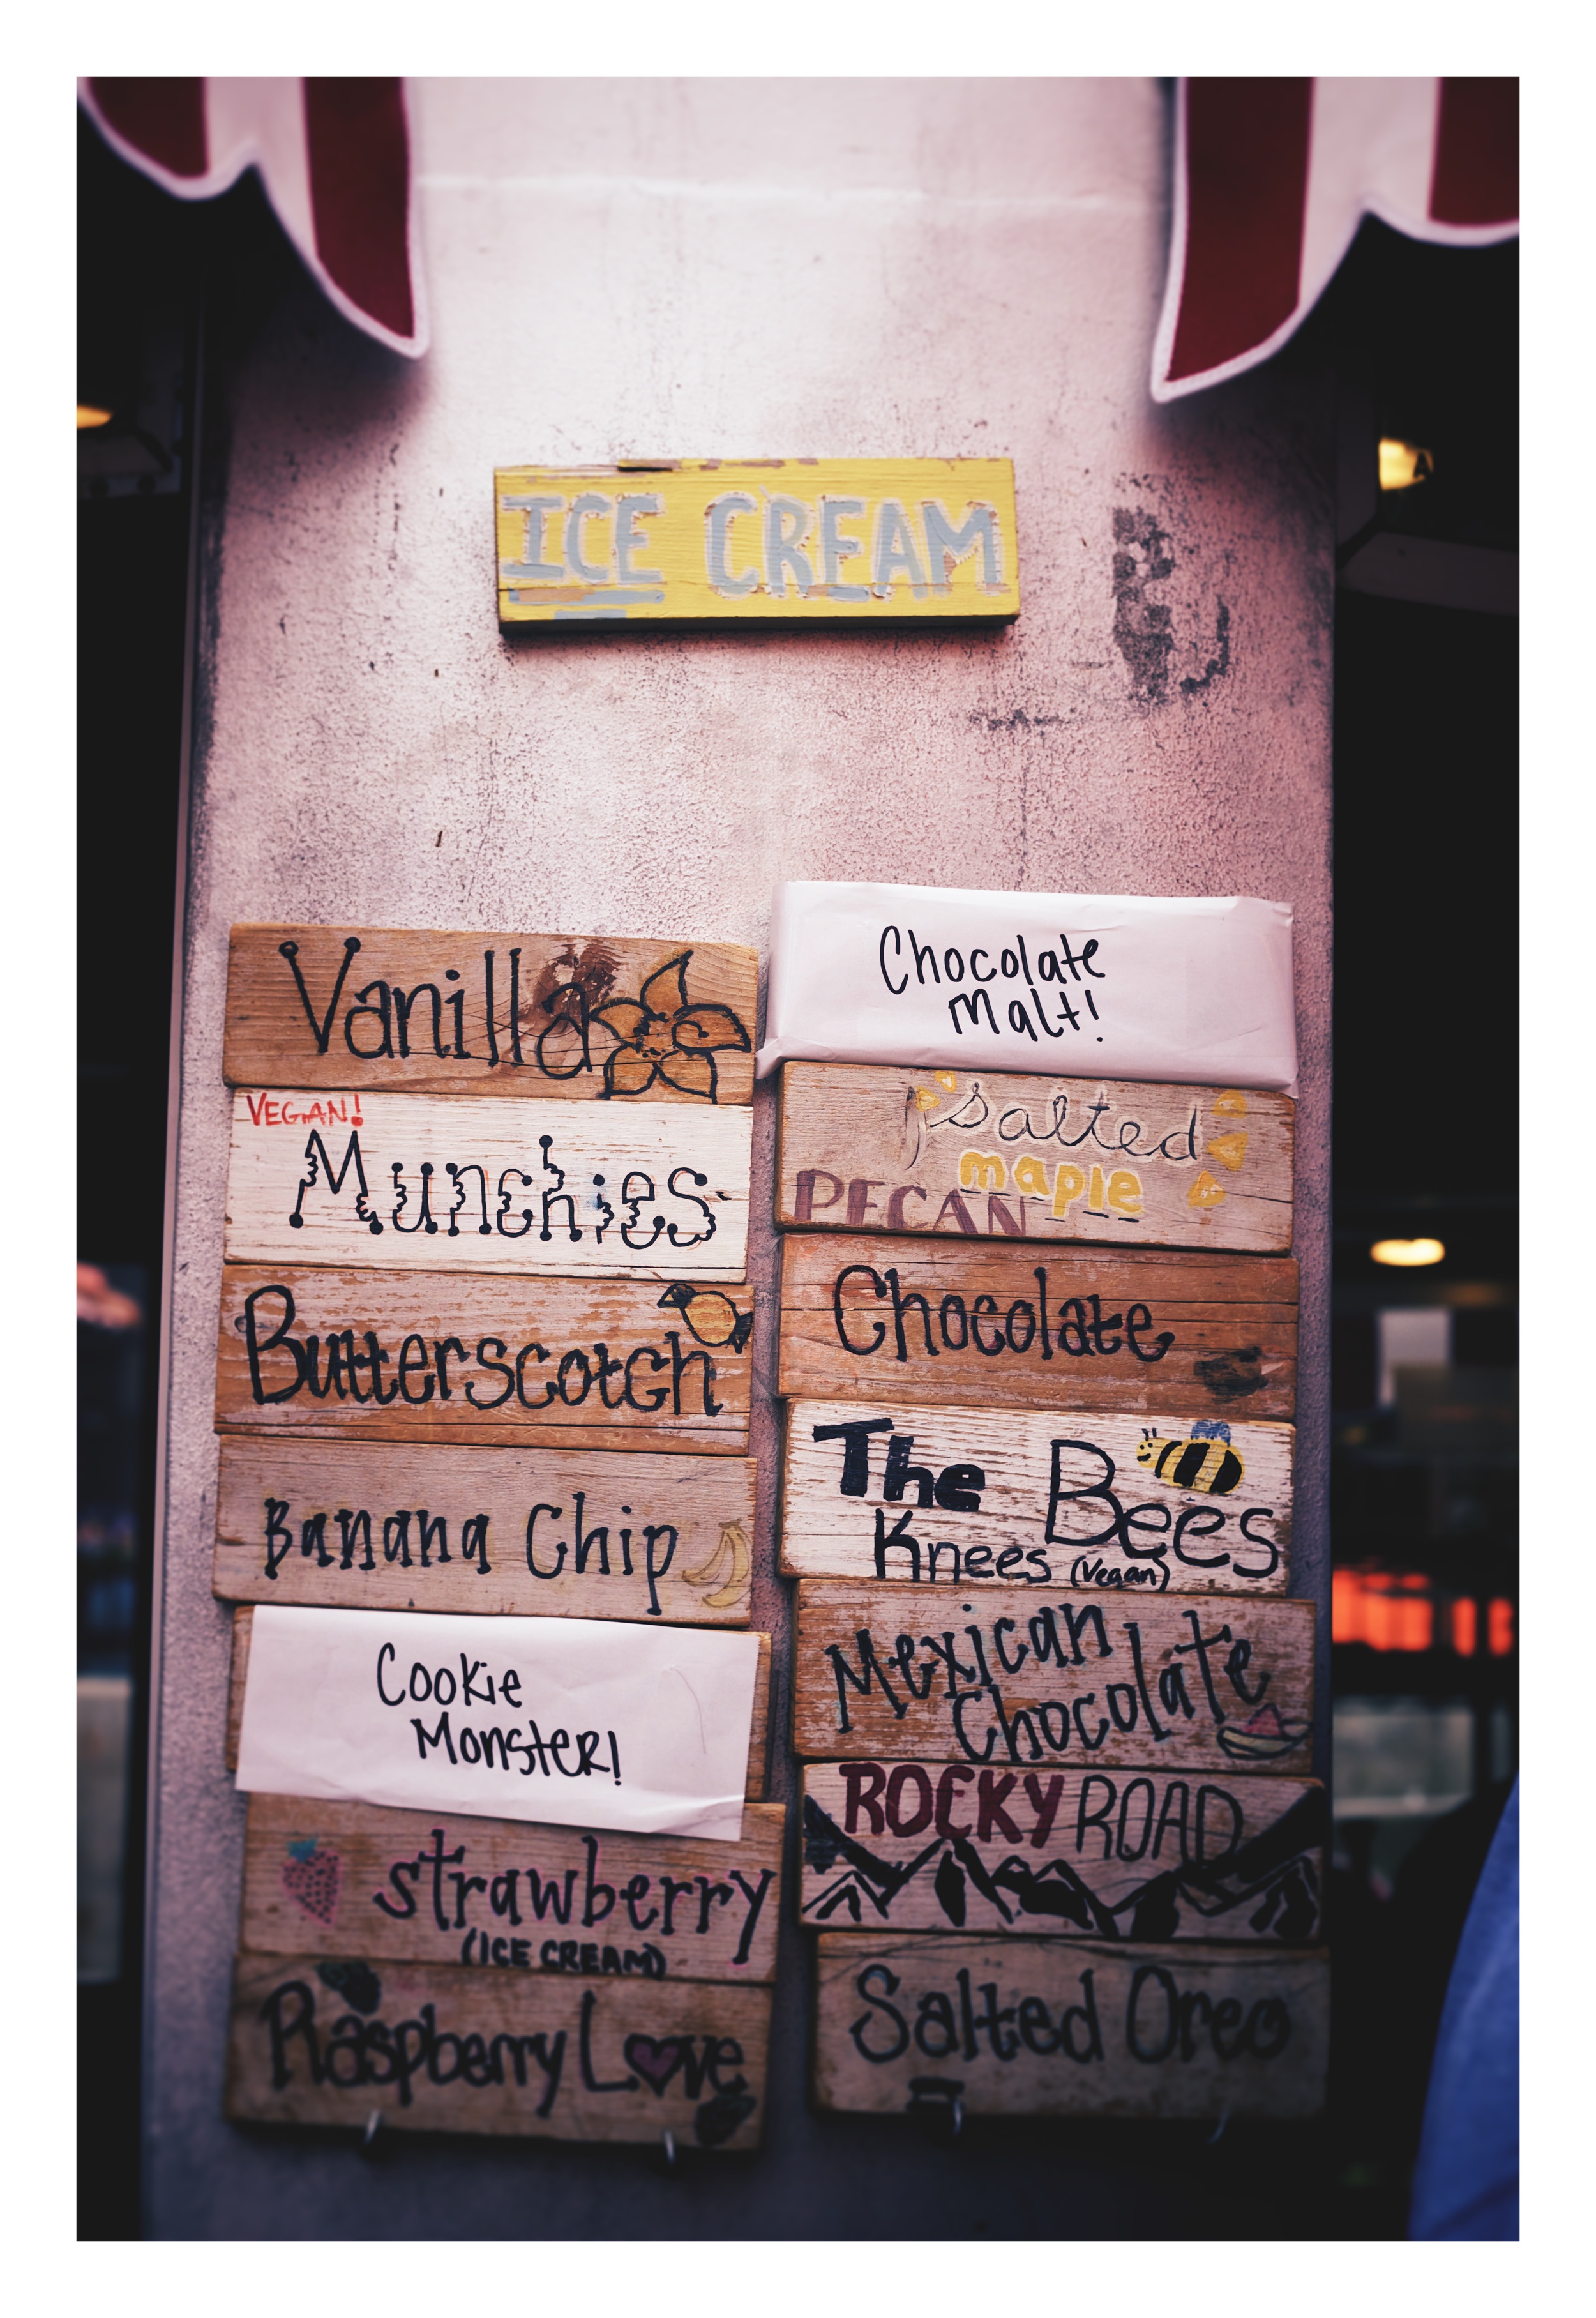 ICE CREAM
Vanilla
VEGAN!
Munchies
Butterscotch
Banana Chip
Cookie
Monster!
strawberry
(ICE CREAM)
Raspberry Love
Chocolate
Malt!
salted
maple
PECAN
Chocolate
The Bees
Knees (Vegan)
Mexican
Chocolate
ROCKY ROAD
Salted Oreo